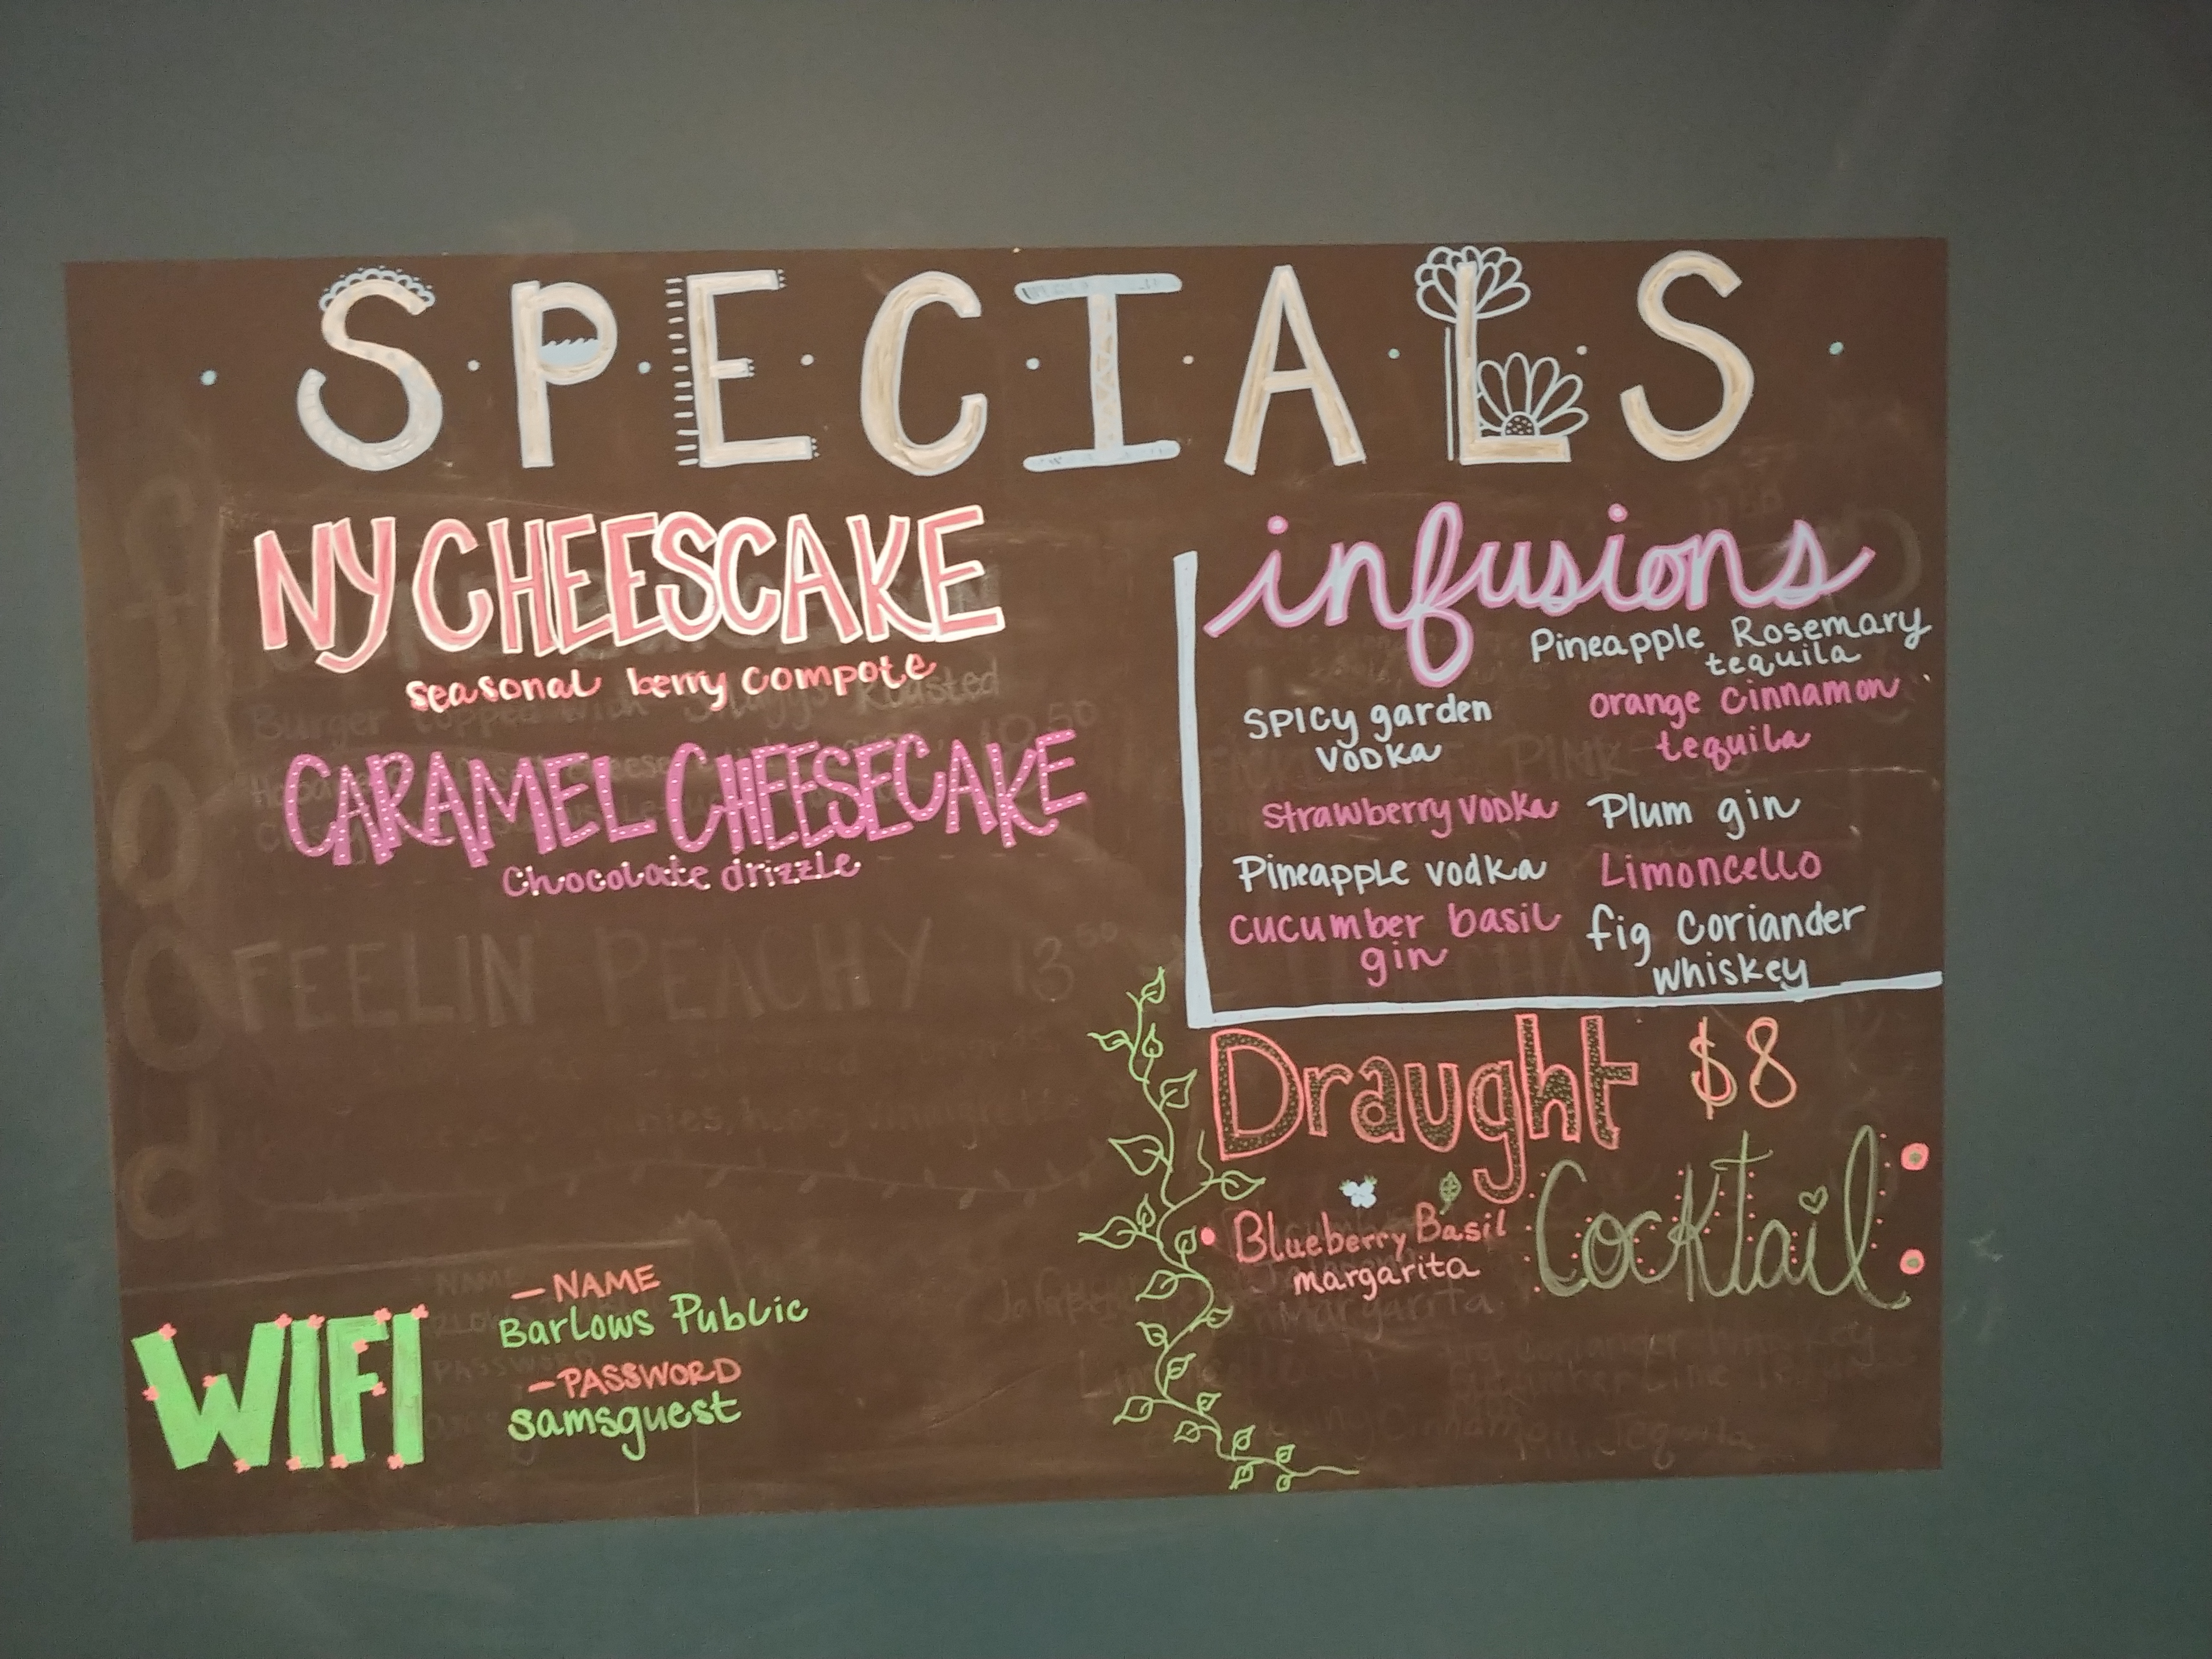 SPECIALS
NY CHEESCAKE
seasonal berry compote
CARAMEL CHEESECAKE
Chocolate drizzle
FEELIN PEACHY 13 50
infusions
Pineapple Rosemary
tequila
SPICY garden
VODKa
orange Cinnamon
tequila
Strawberry VODKa
Plum gin
Pineapple vodka
Limoncello
cucumber basil
gin
fig Coriander
whiskey
Draught $8
Cocktail
Blueberry Basil
margarita
WIFI
- NAME
Barlows Public
- PASSWORD
samsguest